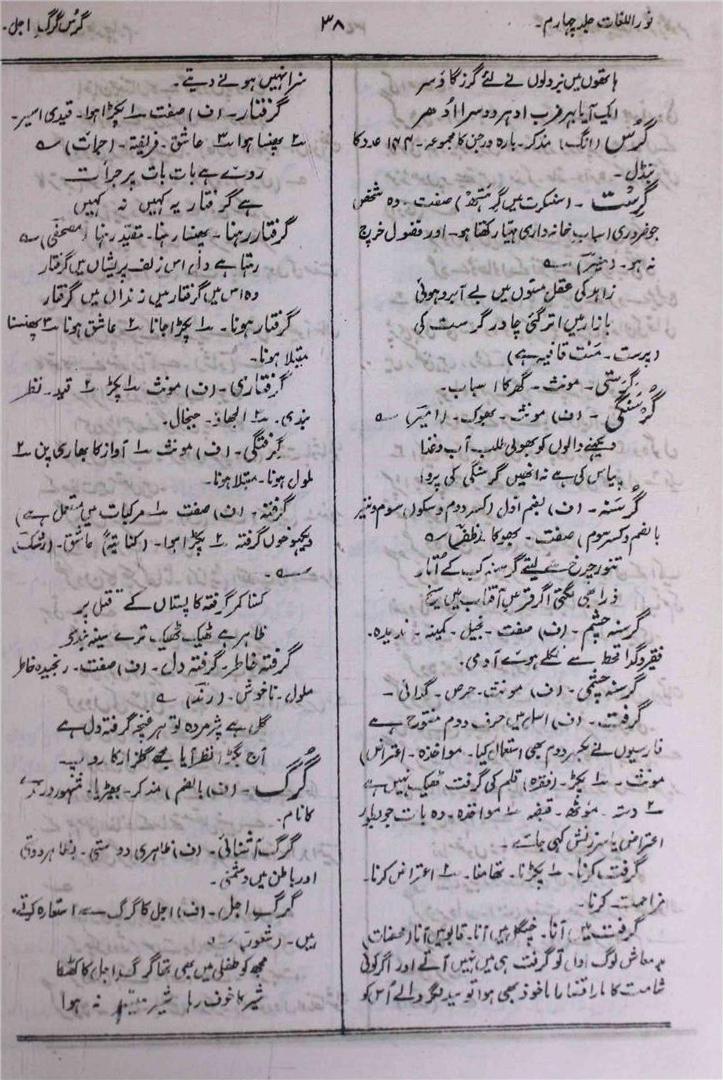 نوراللغات جلد چہارم۔
۳۸
گرس گرگ اجل۔
ہاتھوں میں نردلوں نے لئے گرز گاؤسر
ایک آیا ہر فریب ادہر دوسرا اُدھر
گرُس (انگ) مذکر۔ بارہ درجن کا مجموعہ۔ ۱۴۴ عدد کا
بنڈل۔
گرِست۔ (سنسکرت میں گرِہستھ) صفت۔ وہ شخص
جو ضروری اسباب خانہ داری مہیا رکھتا ہو۔ اور فضول خرچ
نہ ہو۔ (منیر) ؎
زاہد کی عقل مستوں میں بے آبرو ہوئی
بازار میں اتر گئی چادر گرست کی
(پرست۔ مست قافیہ ہے)
گرستی۔ مونث۔ گھر کا اسباب۔
گُرسنگی۔ (ف) مونث۔ بھوک۔ (امیر) ؎
دیکھنے والوں کو بھولی طلب آب و غذا
پیاس کی ہے نہ انھیں گرسنگی کی پروا
گُرسنہ۔ (ف) بضم اول (کسر دوم و سکون سوم و نیز
بالضم و کسر سوم) صفت۔ بھوکا۔ (ظفر) ؎
تنور چرخ سے لیتے گرسنہ کب کے اُتار
ذرا بھی لگتی اگر قرص آفتاب میں سیخ
گرسنہ چشم۔ (ف) صفت۔ بخیل۔ کمینہ۔ ندیدہ۔
فقیر و گدا قحط سے نکلے ہوئے آدمی۔
گرسنہ چشمی۔ (ف) مونث۔ حرص۔ گدائی۔
گرفت۔ (ف) اصل میں حرف دوم مفتوح ہے
فارسیوں نے بکسر دوم بھی استعمال کیا۔ مواخذہ۔ اعتراض)
مونث۔ ۱؎ پکڑ۔ (فقرہ) قلم کی گرفت ٹھیک نہیں ہے
۲؎ دستہ۔ موٹھ۔ قبضہ ۳؎ مواخذہ۔ وہ بات جو بطور
اعتراض یا سرزنش کہی جائے۔
گرفت کرنا۔ ۱؎ پکڑنا۔ تھامنا۔ ۲؎ اعتراض کرنا۔
مزاحمت کرنا۔
گرفت میں آنا۔ چنگل میں آنا۔ قابو میں آنا (محصنات)
بدمعاش لوگ اول تو گرفت ہی میں نہیں آتے اور اگر کوئی
شامت کا مارا قضا را ماخوذ بھی ہوا تو سید نگر والے اُس کو
سزا نہیں ہونے دیتے۔
گرفتار۔ (ف) صفت ۱؎ پکڑا ہوا۔ قیدی اسیر۔
۲؎ پھنسا ہوا ۳؎ عاشق۔ فریفتہ۔ (جرأت) ؎
رونے ہے بات بات پر جرأت
ہے گرفتار یہ کہیں نہ کہیں
گرفتار رہنا۔ پھنسا رہنا۔ مقید رہنا (مصحفی) ؎
رہتا ہے دل اس زلف پریشاں میں گرفتار
وہ اس میں گرفتار میں زنداں میں گرفتار
گرفتار ہونا۔ ۱؎ پکڑا جانا ۲؎ عاشق ہونا ۳؎ پھنسنا
مبتلا ہونا۔
گرفتاری۔ (ف) مونث ۱؎ پکڑ ۲؎ قید۔ نظر
بندی۔ ۳؎ الجھاؤ۔ جنجال۔
گرفتگی۔ (ف) مونث ۱؎ آواز کا بھاری پن ۲؎
ملول ہونا۔ مبتلا ہونا۔
گرفتہ۔ (ف) صفت ۱؎ مرکبات میں مستعمل ہے)
دیکھو خوں گرفتہ ۲؎ پکڑا ہوا۔ (کنایۃً) عاشق۔ (رشک)
؎
کتنا کمر گرفتہ کا پستاں کے قتل پر
ظاہر ہے ٹھیک ٹھیک ترے سینہ بند
گرفتہ خاطر۔ گرفتہ دل۔ (ف) صفت۔ رنجیدہ خاطر
ملول۔ ناخوش۔ (رند) ؎
گل ہے پژمردہ تو ہر غنچہ گرفتہ دل ہے
آج بگڑا نظر آیا مجھے گلزار کا روپ
گُرگ۔ (ف) بالضم) مذکر۔ بھیڑیا۔ مشہور درندے
کا نام۔
گرگ آشنائی۔ (ف) ظاہری دوستی۔ بظاہر دوستی
اور باطن میں دشمنی۔
گرگ اجل۔ (ف) اجل کا گرگ سے استعارہ کرتے
ہیں۔ (شعور) ؎
مجھ کو طفلی میں بھی تھا گرگ اجل کا کھٹکا
شیر کا خوف رہا شیر میسر نہ ہوا